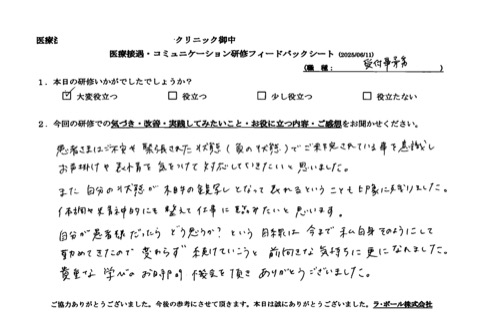 医療法 クリニック御中
医療接遇・コミュニケーション研修フィードバックシート (2025/06/11)
(職 種: 受付事務 )
1．本日の研修いかがでしたでしょうか？
☑ 大変役立つ □ 役立つ □ 少し役立つ □ 役立たない
2．今回の研修での気づき・改善・実践してみたいこと・お役に立つ内容・ご感想をお聞かせください。
患者さまはご不安や緊張された状態(負の状態)でご来院されている事を意識し
お声掛けや表情を気をつけて対応していきたいと思いました。
また自分の状態が相手の鏡写しとなって表れるということも印象に残りました。
体調や精神的にも整えて仕事に臨みたいと思います。
自分が患者様だったらどう思うか？という目線は今まで私自身そのようにして
勤めてきたので変わらず続けていこうと前向きな気持ちに更になれました。
貴重な学びの お時間 機会を頂き ありがとうございました。
ご協力ありがとうございました。今後の参考にさせて頂きます。本日は誠にありがとうございました。ラ・ポール株式会社